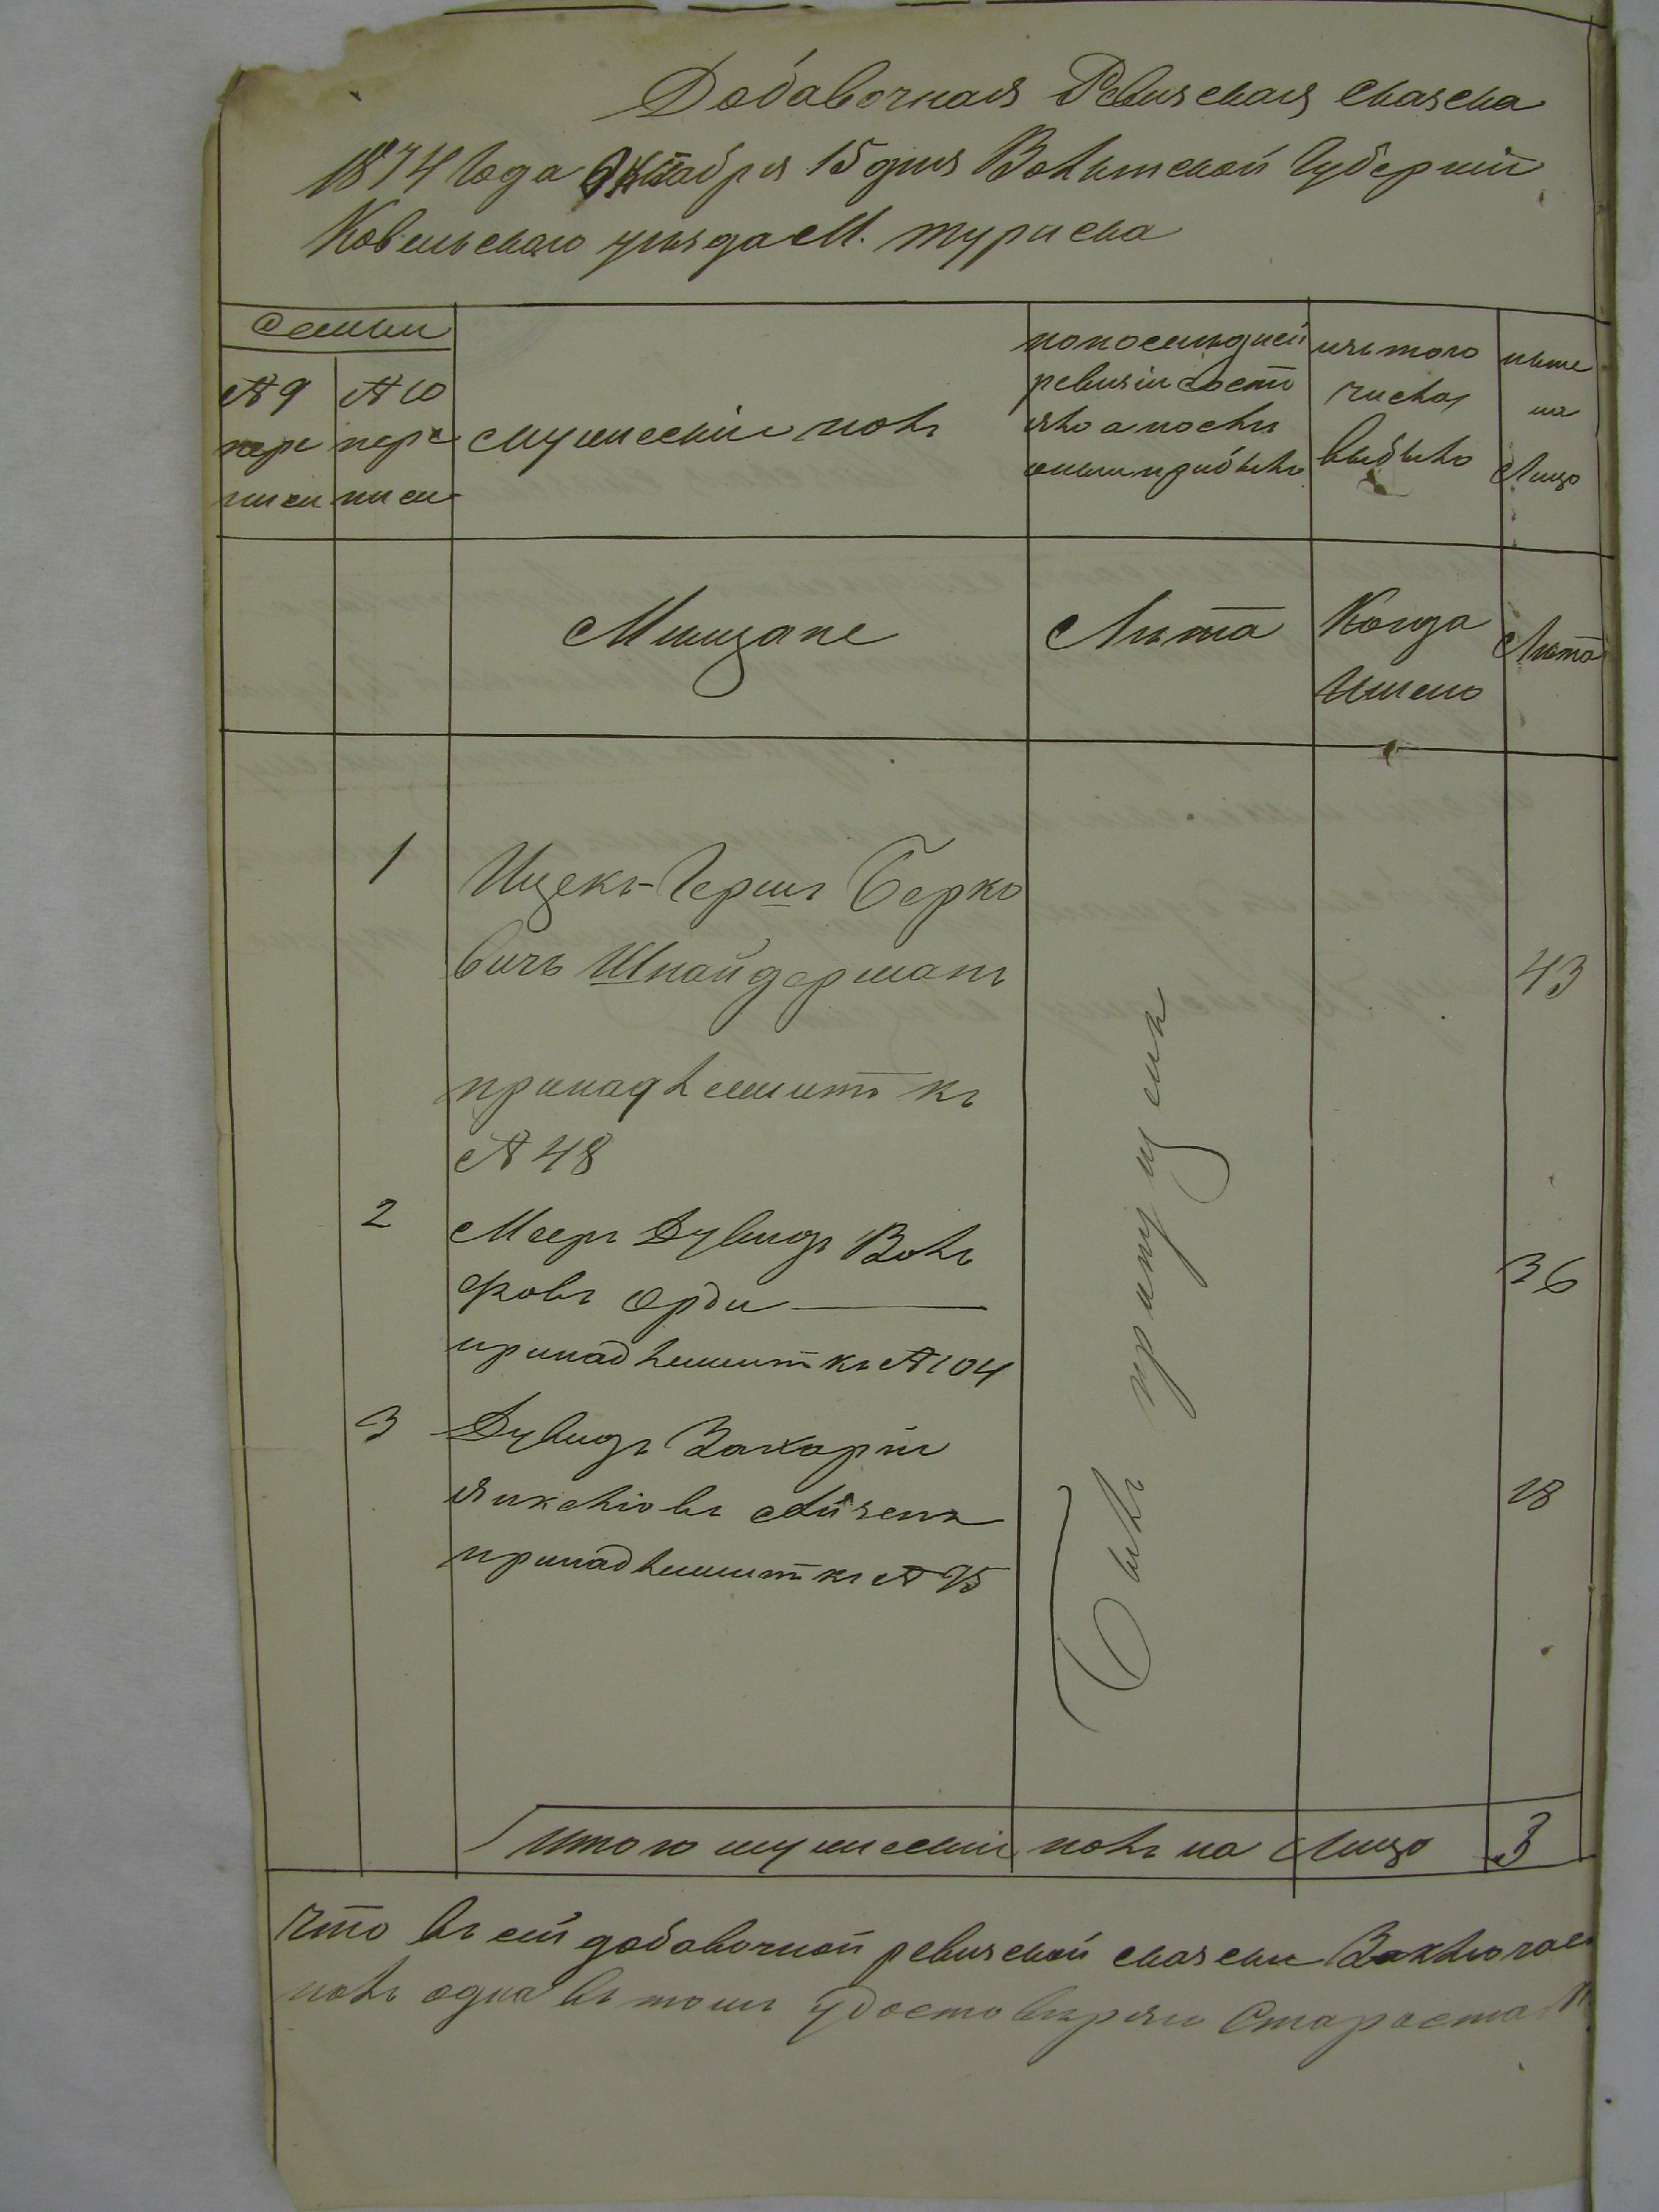 Добавочная Ревизская сказска
1874 года Октября 15 дня Волынской Губернiи
Ковельскаго уѣзда М. турiиска
семьи
№ 9
пере
писи
№ 10
пере
писи
мужескiй полъ
по последней
ревизiи состо
яло а послѣ
оныи прибыло
изъ того
числа
выбыло
ныне
на
Лицо
Мищане
Лѣта
Когда
Именно
Лѣта
1
Ицекъ-Гершъ Берко
вичъ Шнайдерманъ
43
принадлежитъ къ
№ 48
2
Мееръ Дувидъ Вольъ
фовъ Ерди
36
принадлежитъ къ № 104
3
Дувидъ Захарiи
Янкелiовъ
18
принадлежитъ къ №
Былъ пропущенъ
Итого мужескiй полъ на Лицо 3
Что въ сей добавочной ревизской сказски Заключае
полъ одна въ томъ удостовѣряю Староста